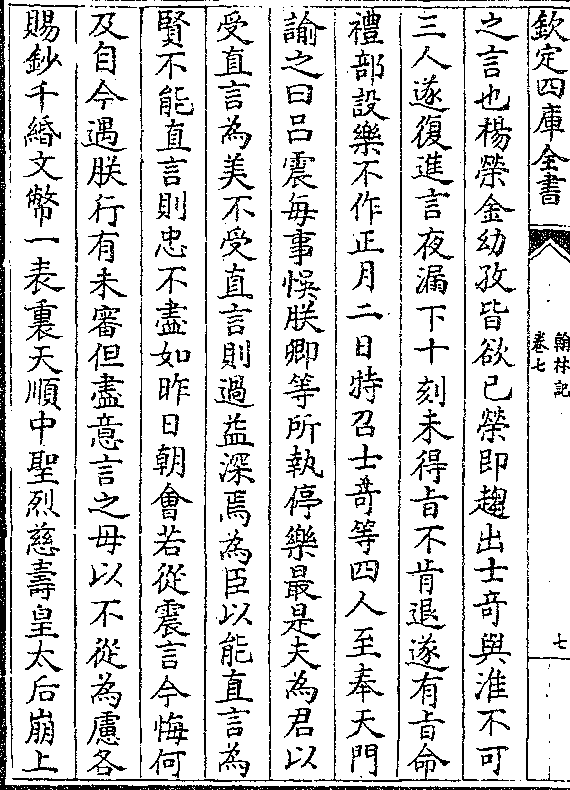 欽定四庫全書
翰林記
卷七
七
之言也楊榮金幼孜皆欲已榮即趨出士竒與淮不可
三人遂復進言夜漏下十刻未得㫖不肯退遂有㫖命
禮部設樂不作正月二日特召士竒等四人至奉天門
諭之曰吕震每事悞朕卿等所執停樂最是夫為君以
受直言為美不受直言則過益深焉為臣以能直言為
賢不能直言則忠不盡如昨日朝㑹若從震言今悔何
及自今遇朕行有未審但盡意言之毋以不從為慮各
賜鈔千緡文幣一表裏天順中聖烈慈壽皇太后崩上